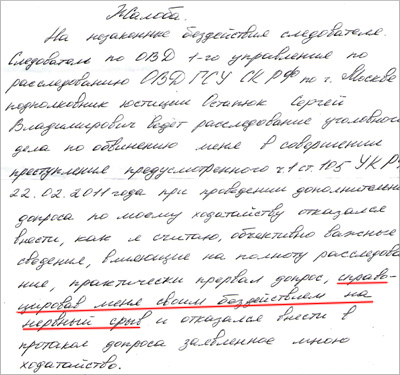 Жалоба.
На незаконные бездействия следователя.
Следователь по ОВД 1-го управления по
расследованию ОВД ГСУ СК РФ по г. Москве
подполковник юстиции Остапюк Сергей
Владимирович ведёт расследование уголовного
дела по обвинению меня в совершении
преступления предусмотренного ч.1 ст.105 УК РФ
22.02.2011 года при проведении дополнительно
допроса по моему ходатайству отказался
внести, как я считаю, объективно важные
сведения, влияющие на полноту расследова
ние, практически прервал допрос, справо-
цировав меня своим бездействием на
нервный срыв и отказался внести в
протокол допроса заявленное мною
ходатайство.